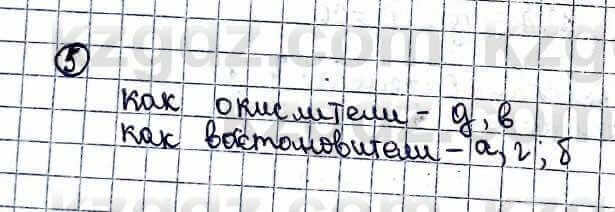 5
как окислители - д, в
как востоновители - а, г, б
kzgdz.com